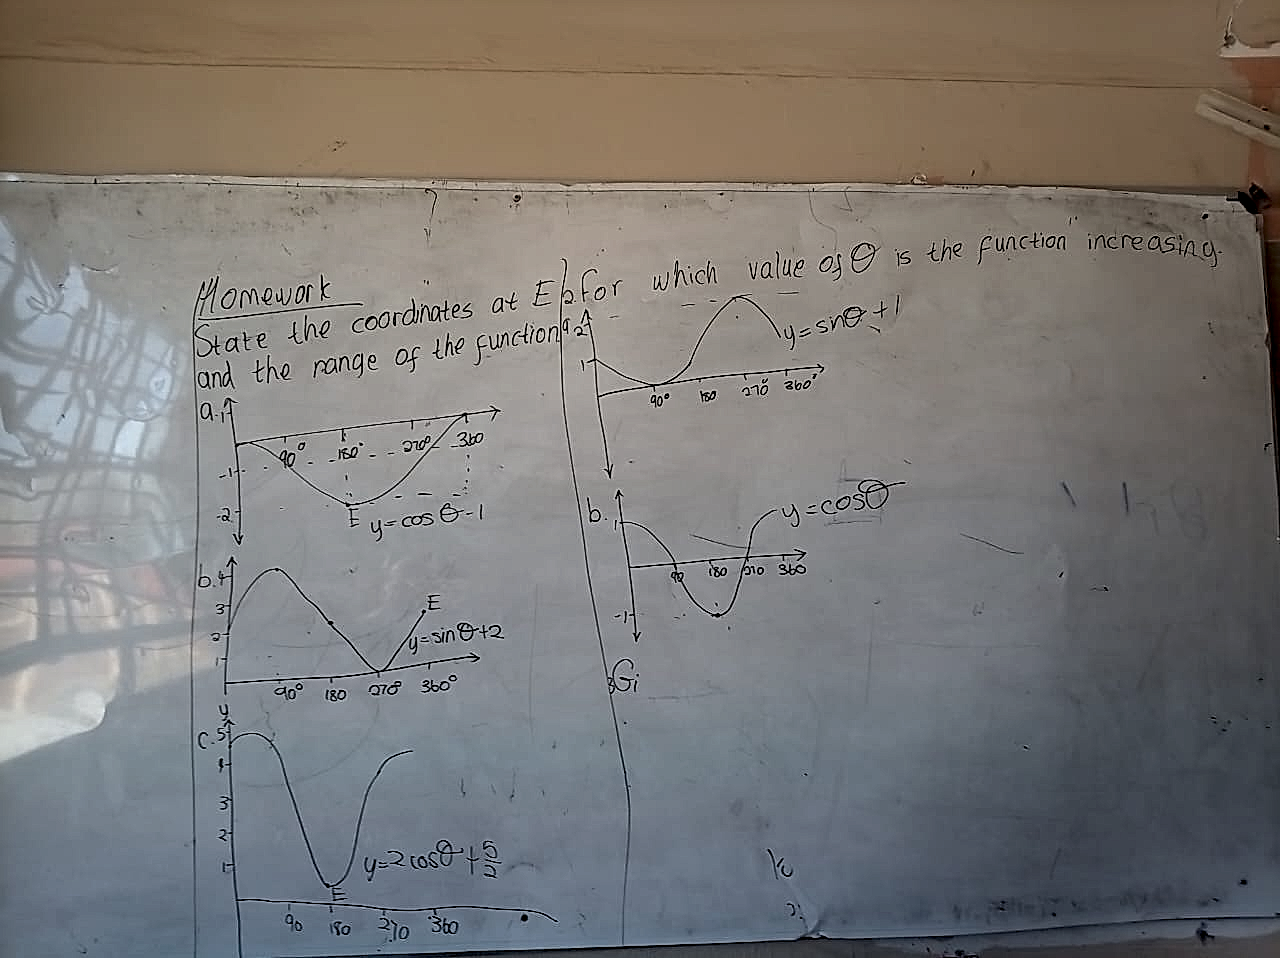 Homework
State the coordinates at E
and the range of the function
a.
1
-1
-2
90°
180°
270°
360
E
y=cos θ-1
b.
4
3
2
1
90°
180
270°
360°
E
y=sinθ+2
y
c.
5
4
3
2
1
90
180
270
360
E
y=2cosθ+5/2
2. For which value of θ is the function increasing.
a.
2
1
90°
180
270°
360°
y=sinθ+1
b.
1
-1
90
180
270
360
y=cosθ